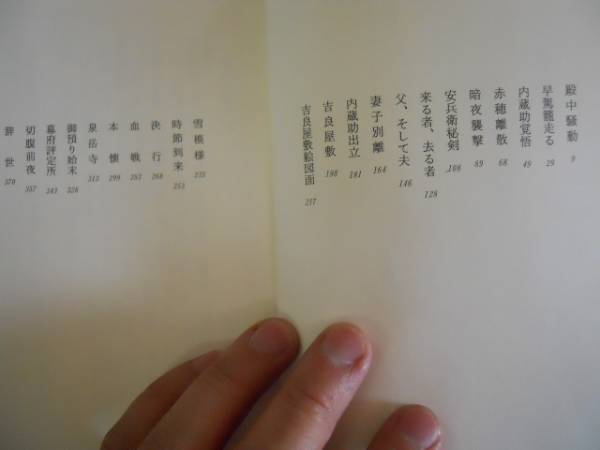 殿中騒動 9
早駕籠走る 29
内蔵助覚悟 49
赤穂離散 68
暗夜襲撃 89
安兵衛秘剣 108
来る者、去る者 128
父、そして夫 146
妻子別離 164
内蔵助出立 181
吉良屋敷 198
吉良屋敷絵図面 217
雪模様 235
時節到来 253
決行 268
血戦 283
本懐 299
泉岳寺 313
御預り始末 328
幕府評定所 343
切腹前夜 357
辞世 370